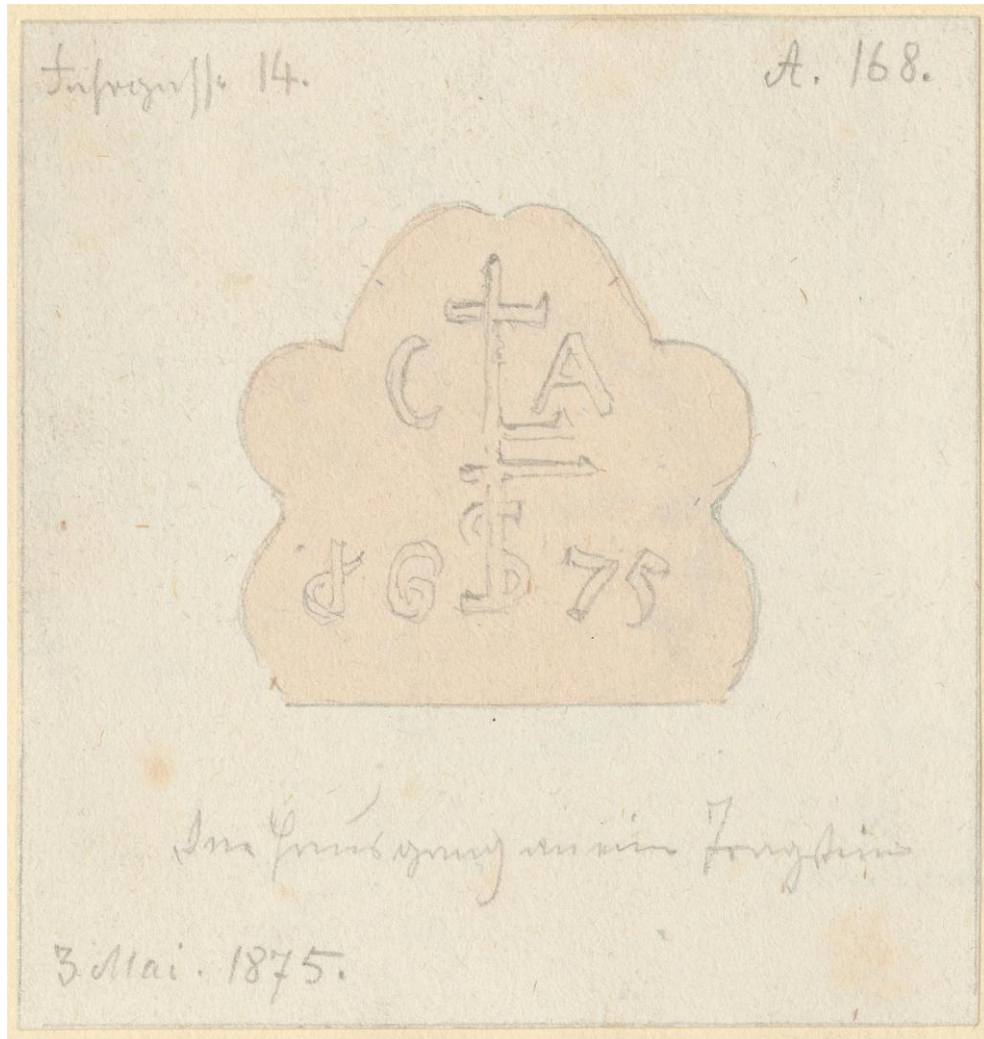 Fahrgasse 14. A. 168.
C A
d G S 75
Im Hausgang an einem Tragstein
3. Mai. 1875.